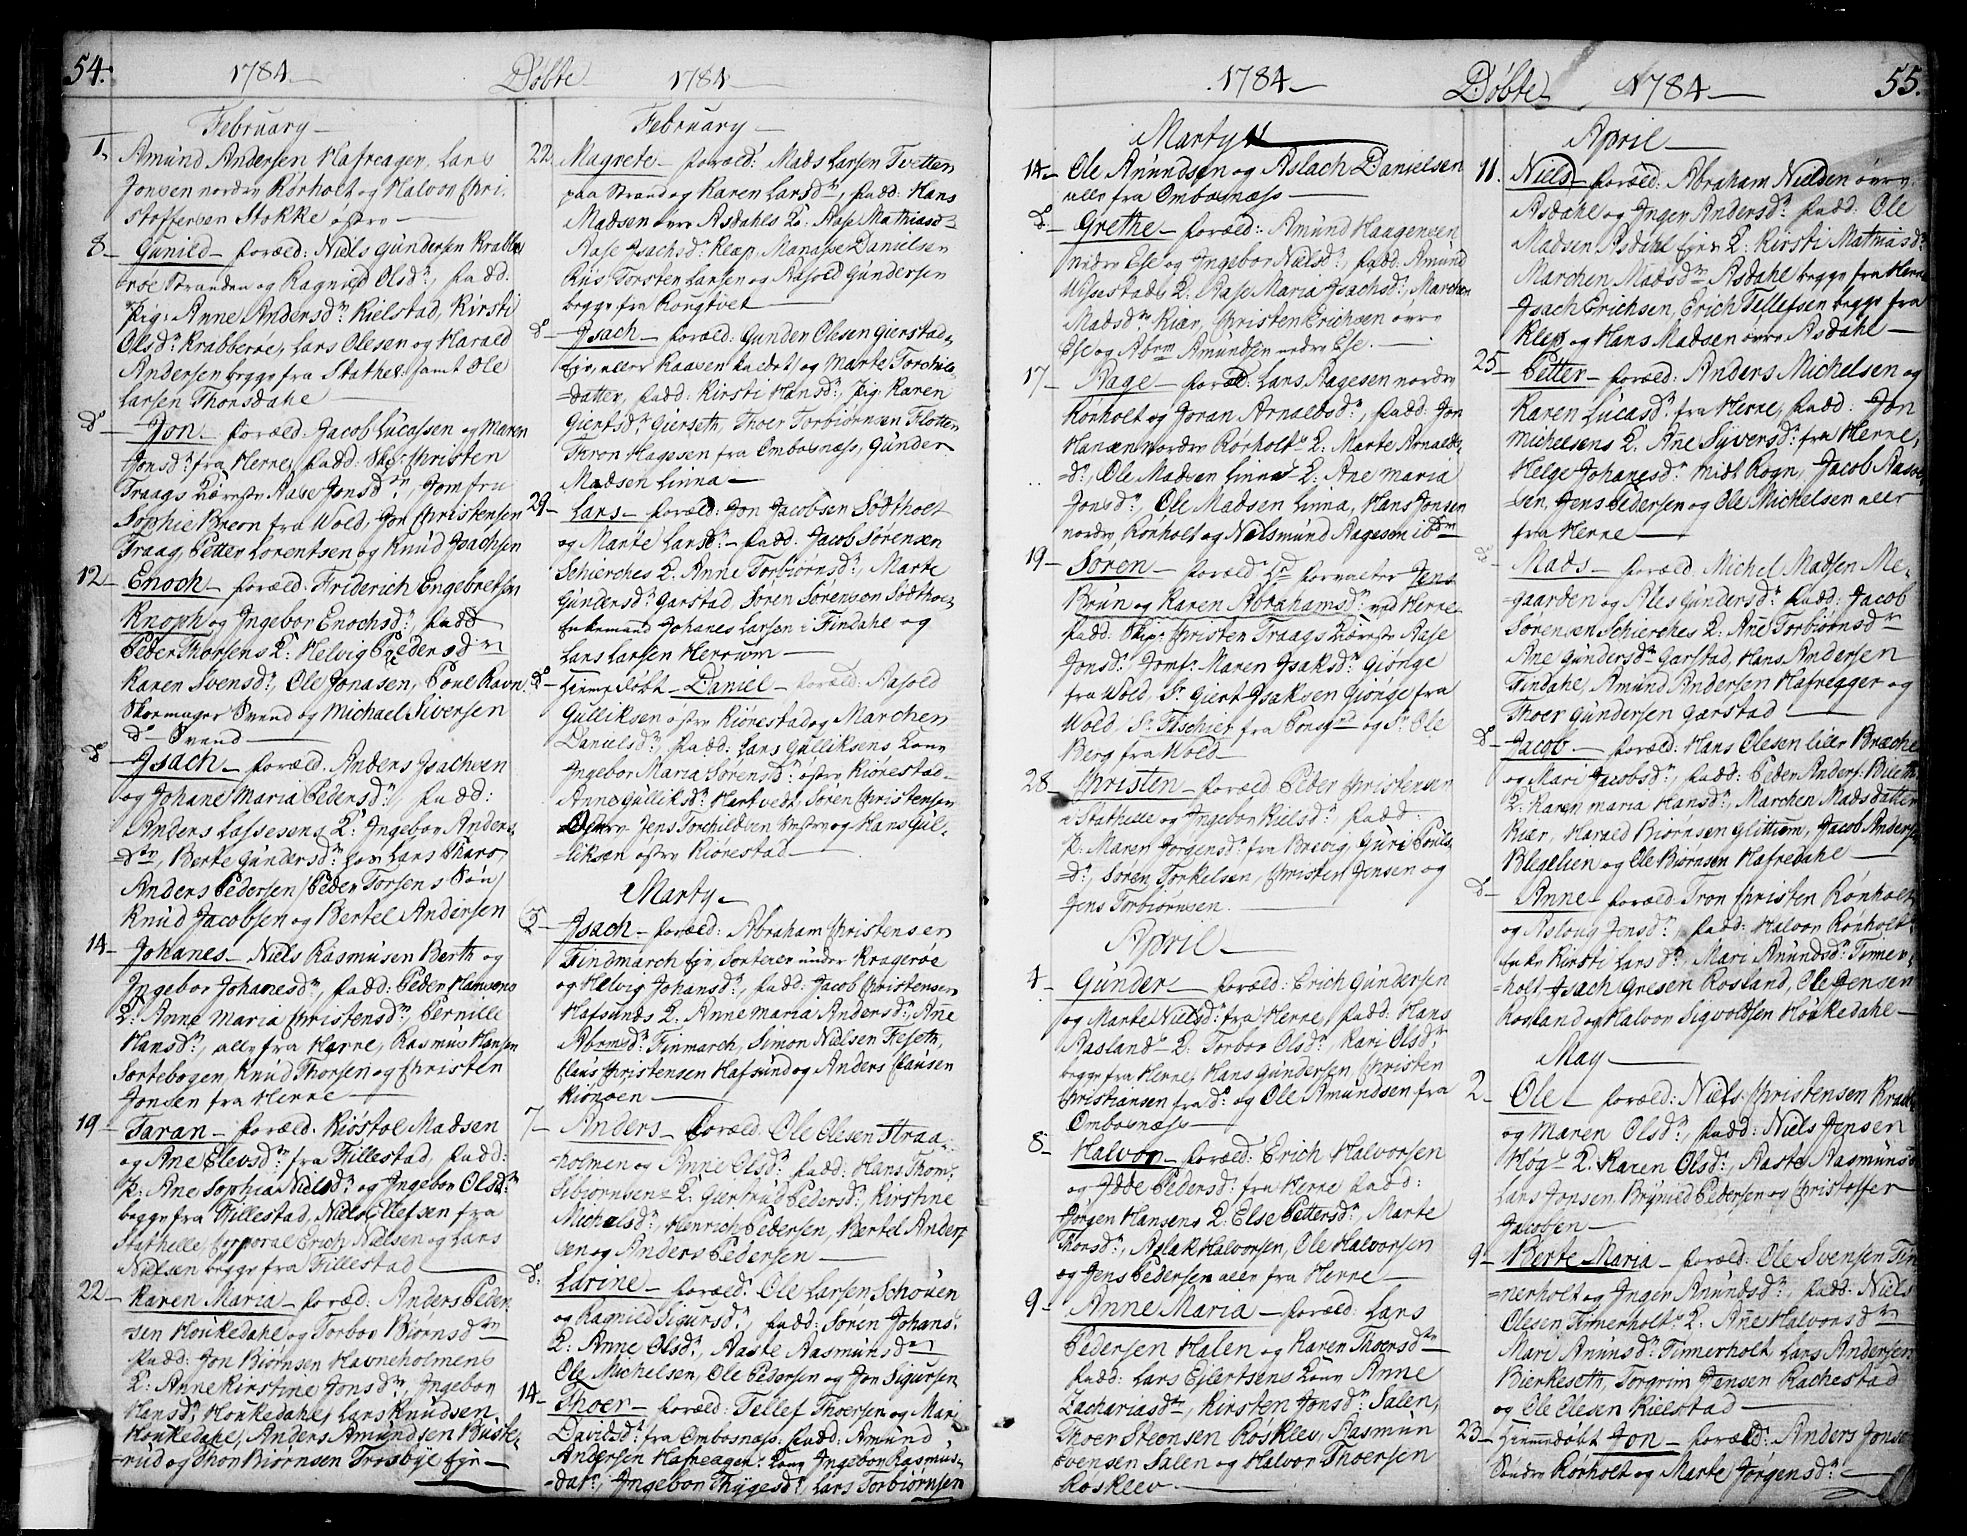 54.
1784 Døbte 1784
February
1. Amund Andersen Hafreager, Lars
Jonsen nordre Rørholt og Halvor Chri-
stoffersen Stokke østre
8 Gunild foræld: Niels Gundersen Krabbe-
røe Stranden og Ragnild Olsdr, fadd:
Pig: Anne Andersdr Kielstad, Kirsti
Olsdr Krabberøe, Lars Olesen og Harald
Andersen begge fra Stathel: samt Ole
Larsen Thonsdahl
do Jon foræld. Jacob Lucassen og Maren
Jonsdr fra Herre, fadd: Skpr Christen
Traags Kierste Aase Jonsdr, Jomfru
Sophie Breon fra Wold, Jon Christensen
Traag, Petter Lorentsen og Knud Isachsen
12 Enoch foræld. Friderich Engebretsen
Knoph og Ingebor Enochsdr, fadd
Peder Thorsens K: Helvig Pedersdr
Karen Svensdr, Ole Jonasen, Poul Ravn
Skomager Svend og Michael Siversen
do Svend
do Isach foræld. Anders Isachsen
og Johane Maria Pedersdr, fadd:
Anders Lassesens K: Ingebor Anders-
dtr, Berte Gundersdr Lars Thars,
Anders Pedersen /Peder Torsens Søn/
Knud Jacobsen og Bertel Andersen
14 Johanes Niels Rasmusen Berth og
Ingebor Johanesdr, fadd: Peder Hansens
K: Anne Maria Christensdr, Pernille
Hansdr, alle fra Herre, Rasmus Hansen
Sortebogen, Knud Thorsen og Christen
Jonsen fra Herre
19 Taran foræld. Kiøstol Madsen
og Ane Elevsdr fra Tillestad, fadd:
P: Ane Sophia Nielsdr og Ingebor Olsdr
begge fra Tillestad, Niels Ellefsen fra
Stathelle, Corporal Erich Nielsen og Lars
Nielsen begge fra Tillestad
22 Karen Maria foræd: Anders Peder-
sen Houkedahl og Torbor Biørnsdtr
fadd: Jon Biørnsen Havneholmens
K: Anne Kirstine Jonsdr, Ingebor
Hansdr Houkedahl, Lars Knudsen
Houkedahl, Anders Amundsen Buste-
rud og Thor Biørnsen Trosbye eje
February
22 Magrete foræld: Mads Larsen Tvetten
paa Strand og Karen Larsdr, fadd: Hans
Madsen øvre Asdahls K: Aase Mathiasdr
Aase Isachsdr Klep, Manasse Danielsen
Riis Torsten Larsen og Aasold Gundersen
begge fra Rougtvet
do Isach foræld: Gunder Olesen Gierstad-
eje, eller Raasen kaldet og Marte Torchils-
datter, fadd: Kirsti Hansdr, Pig: Karen
Giertsdr Gierseth, Thoer Torbiørnsen Flotten
Thron Hagesen fra Ombosnæss, Gunder
Madsen Linna
29 Lars foræld: Jon Jacobsen Sødtholt
og Marte Larsdr fadd: Jacob Sørensen
Schierches K: Anne Torbiørnsdr, Marte
Gundersdr Garstad Søren Sørenson Sødthol-
Enkemand Johanes Larsen i Findahl og
Lars Larsen Herrum
do Hiemedøbt Daniel foræld. Aasold
Gulliksen østre Kiørestad og Marchen
Danielsdr, fadd: Lars Gulliksens Kone
Ingebor Maria Sørensdr østre Kiørestad
Anne Gulliksdr Hartvedt, Søren Christensen
Jens Torchildsen Vestre og Hans Gul-
liksen østre Kiørestad
Marty
5 Isach foræld: Abraham Christensen
Findmarch eje, Sorterer under Kragerøe
og Helvig Johansdr, fadd: Jacob Christensen
Hafsunds K: Anne Maria Andersdr, Ane
Abrmsdr Finmarch, Simon Nielsen Feseth,
Claus Christensen Hafsund og Anders Clausen
Kionøen
7 Anders foræld. Ole Olesen Straa-
holmen og Anne Olsdr fadd: Hans Thom:
Sibiørnsens K: Giertrud Pedersdr, Kirstine
Michelsdr, Henrich Pedersen, Bertel Anders-
sen og Anders Pedersen
do Larine foræld: Ole Larsen Schouen
og Ragnild Sigursdr, fadd: Søren Johans:
K: Anne Olsdr, Aaste Aasmundsdr
Ole Michelsen, Ole Pedersen og Jon Sigursen
14 Thoer foræld: Tellef Thoersen og Mari
Davidsdr fra Ombosnæss. fadd: Amund
Andersen Hafreager: Kone Ingebor Rasmus-
datr, Ingebor Thygesdr, Lars Torbiørnsen
1784 Døbte 1784
55.
Marty
14 Ole Anundsen og Aslach Danielsen
alle fra Ombosnæss
do Grethe foræld: Amund Haagensen
nedre Ese og Ingebor Nielsdr, fadd: Amund
Ulsestads K: Aase Maria Isachsdr, Marchen
Madsdr Kiær, Christen Erichsen øvre
Ese og Abrm Amundsen nedre Ese.
17 Aage foræld: Lars Aagesen nordre
Rønholt og Joran Arnaldsdr, fadd: Jon
Hansen nordre Rørholts K: Marte Arnalds-
dr, Ole Madsen Linna K: Ane Maria
Jonsdr, Ole Madsen Linna, Hans Jonsen
nordre Rønholt og Nielsmund Aagesen ibdm
19 Søren foræld Sr forvalter Jens
Brun og Karen Abrahamsdr ved Herre
fadd: Skipr Christen Traags Kiærste Aase
Jonsdr Jomf: Maren Isaksdr Giønge
fra Wold, Sr Giert Isaksen Giønge fra
Wold, Sr Faschier fra Porsgrnd og Sr Ole
Berg fra Wold
28 Christen foræld Peder Christensen
i Stathelle og Ingebor Nielsdr, fadd:
P: Maren Jørgensdr fra Brevig, Guri Pouls-
dr, Søren Torkelsen, Christen Jensen og
Jens Torbiørnsen.
April
4 Gunder foræld: Erich Gundersen
og Marte Nielsdr fra Herre, fadd: Hans
Aaslands K: Torbor Olsdr, Kari Olsdr,
begge fra Herre, Hans Gundersen, Christen
Christiansen fra do og Ole Amundsen fra
Ombosnæss
8 Halvor foræld: Erich Halvorsen
og Idde Pedersdr fra Herre fadd:
Jørgen Hansens K: Else Pettersdr, Marte
Thorsdr, Aslak Halvorsen, Ole Halvorsen
og Jens Pedersen alle fra Herre
9 Anne Maria foræld: Lars
Pedersen Halen og Karen Thoersdtr
fadd: Lars Ejlertsens Kone Anne
Zachariasdtr, Kirsten Jonsdr Salen,
Thoer Steensen Røsklev, Aasmun
Svensen Salen og Halvor Thoersen
Røsklev
April
11. Niels foræld: Abraham Nielsen øvre
Asdahl og Inger Andersdr fadd: Ole
Madsen Asdahl ejes K: Kirsti Mathiasdr
Marchen Madsdr Asdahl begge fra Herre
Isach Erichsen, Erich Tellefsen begge fra
Klep og Hans Madsen øvre Asdahl
25 Petter foræld: Anders Michelsen og
Karen Lucasdr. fra Herre, fadd: Jon
Michelsens K: Ane Syversdr fra Herre,
Helge Johanesdr Midt Rogn, Jacob Aasol-
sen, Jens Pedersen og Ole Michelsen alle
fra Herre
do Mads foræld. Michel Madsen Me-
gaarden og Ales Gundersdr fadd: Jacob
Sørensen Schierches K: Ane Torbiørnsdr
Ane Gundersdr Garstad, Hans Andersen
Findahl, Amund Andersen Hafregger og
Thoer Gundersen Garstad
do Jacob foræld: Hans Olesen lille Bræche
og Mari Jacobsdr, fadd: Peder Anders: Blieth-
K: Karen Maria Hansdr, Marchen Madsdatter
Kiær, Harald Biørnsen Glittum, Jacob Anders-
Blegelien og Ole Biørnsen Hafredahl
do Anne foræld: Tron Christen Rønholt
og Asloug Jensdr, fadd: Halvor Rønholt
Enke Kirsti Larsdr, Mari Anundsdr Timer-
holt, Isach Gresen Rosland, Ole Jensen
Rosland og Halvor Sigvoldsen Houkedahl
May
2 Ole foræld: Niels Christensen Krabbe
og Maren Olsdr, fadd: Niels Jensen
Høg K: Karen Olsdr, Aaste Aasmunsd
Lars Jonsen, Brynild Pedersen og Christoffer
Jacobsen
9 Berte Maria foræld: Ole Svensen Tim-
nerholt og Inger Anundsdr fadd: Niels
Olesen Timerholts K: Ane Halvorsdr
Mari Anunsdr Timmerholt Lars Andersen
Bierkeseth, Torgrim Jensen Rachestad
og Ole Olesen Kielstad
23 Hiemedøbt Jon foræld: Anders Jonsen
Søndre Rørholt og Marte Jørgensdr